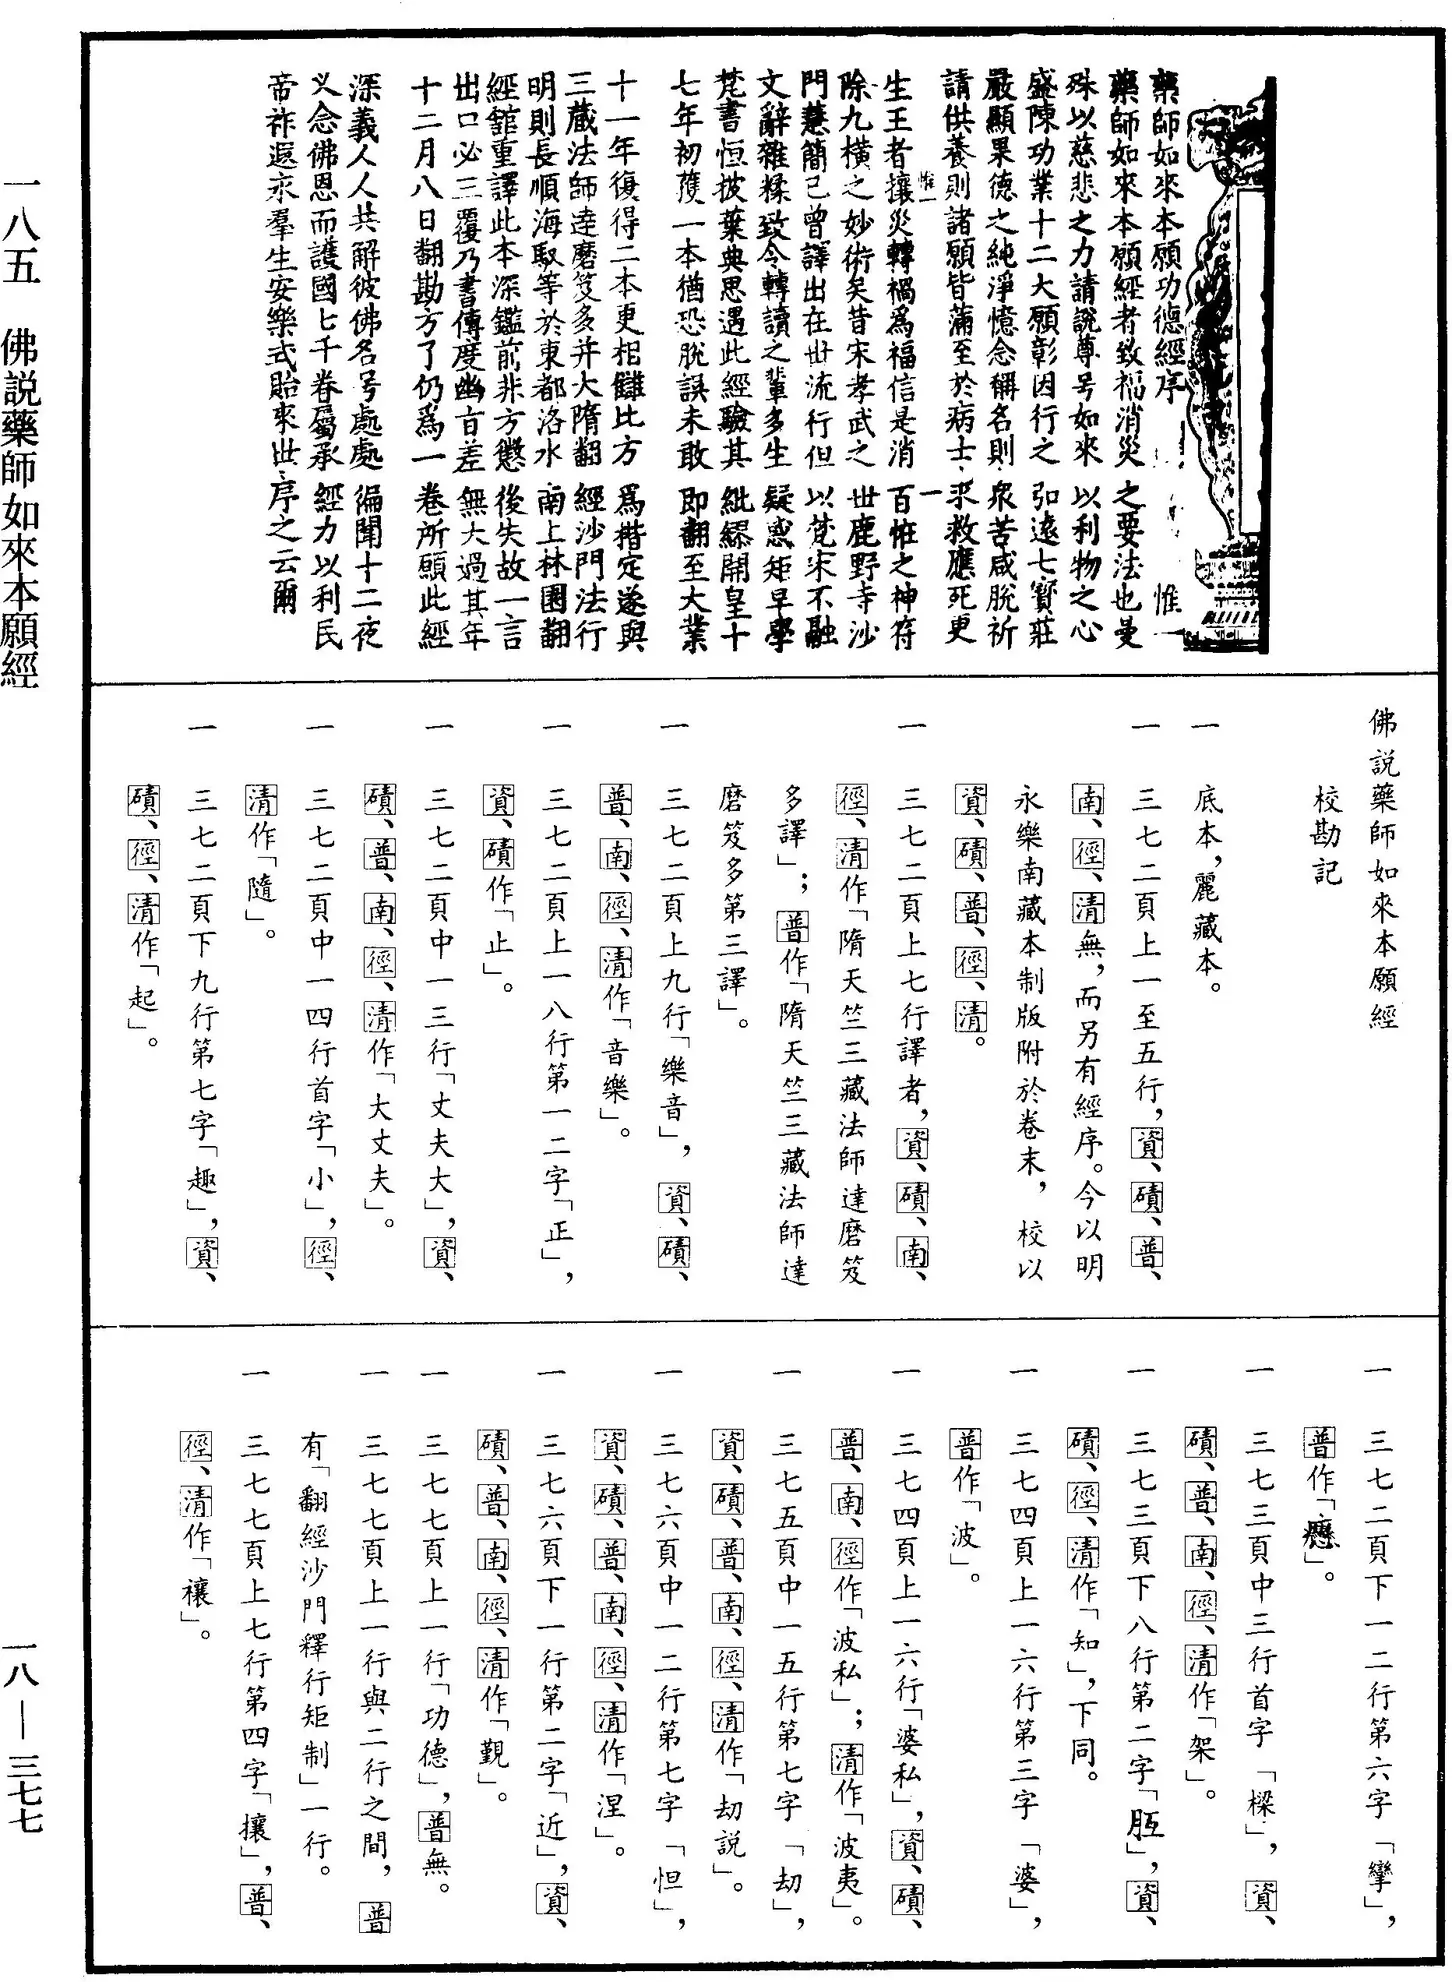 藥師如來本願功德經序　惟一
藥師如來本願經者致福消災之要法也曼
殊以慈悲之力請說尊号如來以利物之心
盛陳功業十二大願彰因行之弘遠七寳莊
嚴顯果德之純淨憶念稱名則衆苦咸脫祈
請供養則諸願皆滿至於病士求救應死更
惟一
生王者攘災轉禍爲福信是消百恠之神符
除九横之妙術矣昔宋孝武之世鹿野寺沙
門慧簡已曾譯出在世流行但以梵宋不融
文辭雜糅致令轉讀之輩多生疑惑矩早學
梵書恒披葉典思遇此經驗其紕繆開皇十
七年初獲一本猶恐脫誤未敢即翻至大業
十一年復得二本更相讎比方爲揩定遂與
三藏法師達磨笈多并大隋翻經沙門法行
明則長順海馭等於東都洛水南上林園翻
經舘重譯此本深鑑前非方懲後失故一言
出口必三覆乃書傳度幽旨差無大過其年
十二月八日翻勘方了仍爲一卷所願此經
深義人人共解彼佛名号處處遍聞十二夜
叉念佛恩而護國七千眷屬承經力以利民
帝祚遐永羣生安樂式貽來世序之云爾
佛說藥師如來本願經
校勘記
一　底本，麗藏本。
一　三七二頁上一至五行，資、磧、普、
南、徑、清無，而另有經序。今以明
永樂南藏本制版附於卷末，校以
資、磧、普、徑、清。
一　三七二頁上七行譯者，資、磧、南、
徑、清作「隋天竺三藏法師達磨笈
多譯」；普作「隋天竺三藏法師達
磨笈多第三譯」。
一　三七二頁上九行「樂音」，資、磧、
普、南、徑、清作「音樂」。
一　三七二頁上一八行第一二字「正」，
資、磧作「止」。
一　三七二頁中一三行「丈夫大」，資、
磧、普、南、徑、清作「大丈夫」。
一　三七二頁中一四行首字「小」，徑、
清作「隨」。
一　三七二頁下九行第七字「趣」，資、
磧、徑、清作「起」。
一　三七二頁下一二行第六字「攣」，
普作「癵」。
一　三七三頁中三行首字「樑」，資、
磧、普、南、徑、清作「架」。
一　三七三頁下八行第二字「胝」，資、
磧、徑、清作「知」，下同。
一　三七四頁上一六行第三字「婆」，
普作「波」。
一　三七四頁上一六行「婆私」，資、磧、
普、南、徑作「波私」；清作「波夷」。
一　三七五頁中一五行第七字「劫」，
資、磧、普、南、徑、清作「劫說」。
一　三七六頁中一二行第七字「怛」，
資、磧、普、南、徑、清作「涅」。
一　三七六頁下一行第二字「近」，資、
磧、普、南、徑、清作「覲」。
一　三七七頁上一行「功德」，普無。
一　三七七頁上一行與二行之間，普
有「翻經沙門釋行矩制」一行。
一　三七七頁上七行第四字「攘」，普、
徑、清作「禳」。
一八五　佛說藥師如來本願經
一八—三七七